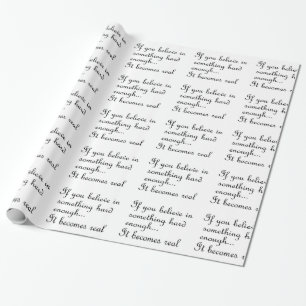 If you believe in
something hard
enough...
It becomes real
If you believe in
something hard
enough...
It becomes real
If you believe in
something hard
enough...
It becomes real
If you believe in
something hard
enough...
It becomes real
If you believe in
something hard
enough...
It becomes real
If you believe in
something hard
enough...
It becomes real